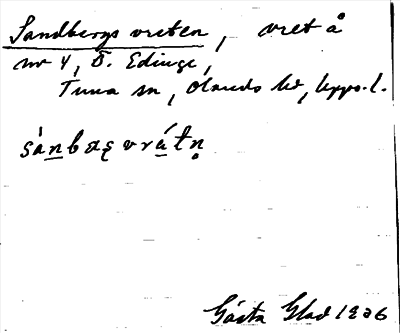 Sandbergs vreten, vret å
nr 4, Ö. Edinge,
Tuna sn, Olands hd, Upps. l.
sánbæʂvrátn̥
Gösta Glad 1926